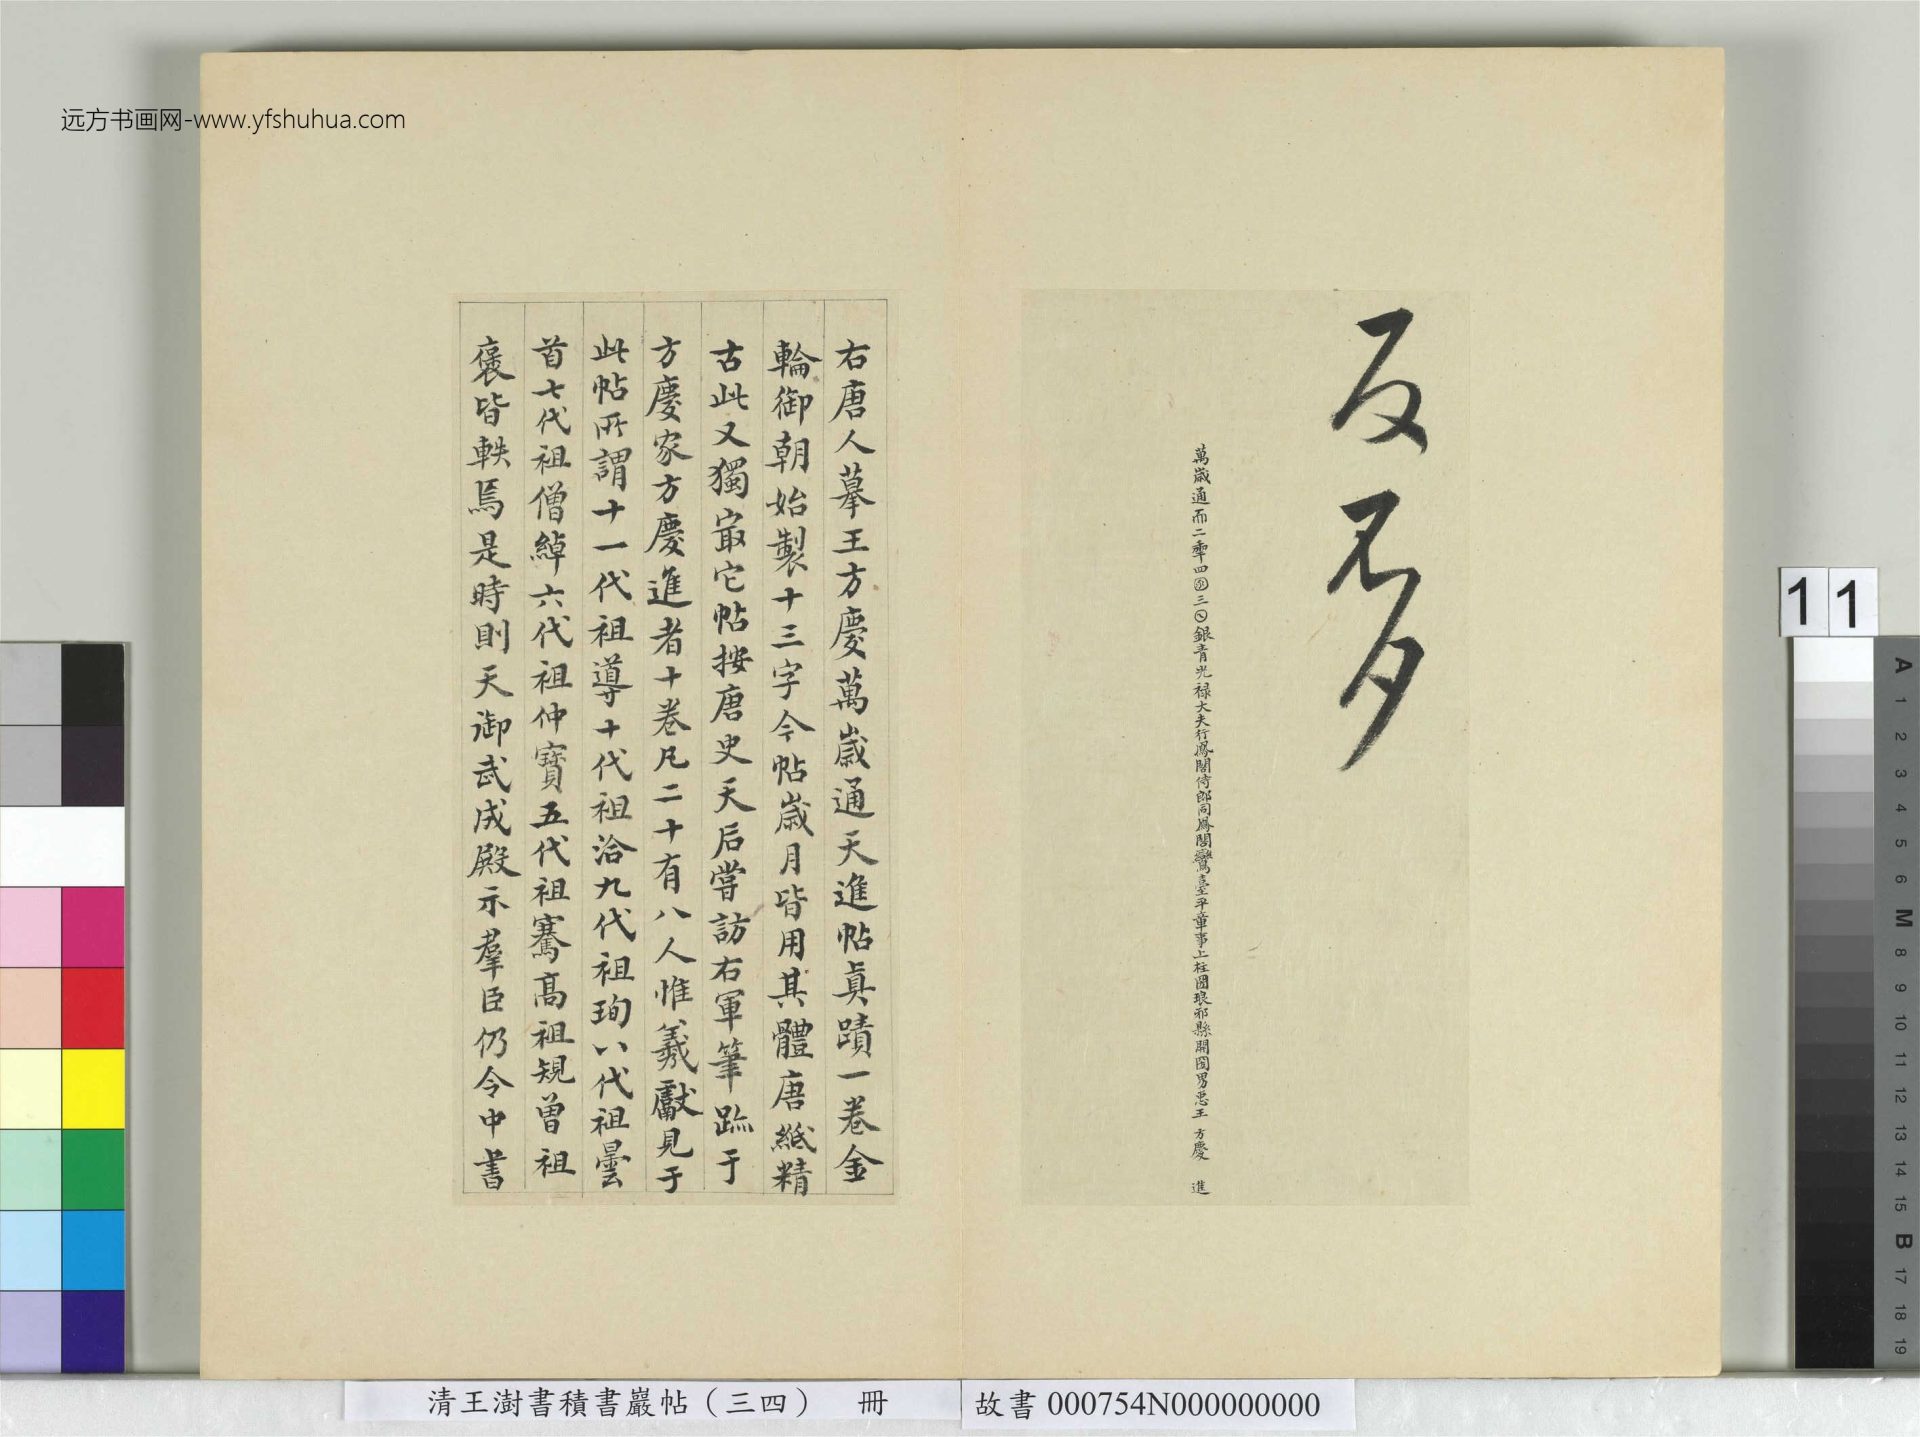 远方书画网-www.yfshuhua.com
萬歲通而二秊四囝三〇銀青光禄大夫行鳳閣侍郎同鳳閣鸞臺平章事上柱國琅邪縣開國男臣王方慶進
右唐人摹王方慶萬歲通天進帖真蹟一卷金
輪御朝始製十三字今帖歲月皆用其體唐紙精
古此又獨冣它帖按唐史天后嘗訪右軍筆跡于
方慶家方慶進者十卷凡二十有八人惟羲獻見于
此帖所謂十一代祖導十代祖洽九代祖珣八代祖曇
首七代祖僧綽六代祖仲寶五代祖騫高祖規曾祖
褒皆軼焉是時則天御武成殿示羣臣仍令中書
11
清王澍書積書巖帖（三四） 冊
故書 000754N000000000
A 1 2 3 4 5 6 M 8 9 10 11 12 13 14 15 B 17 18 19